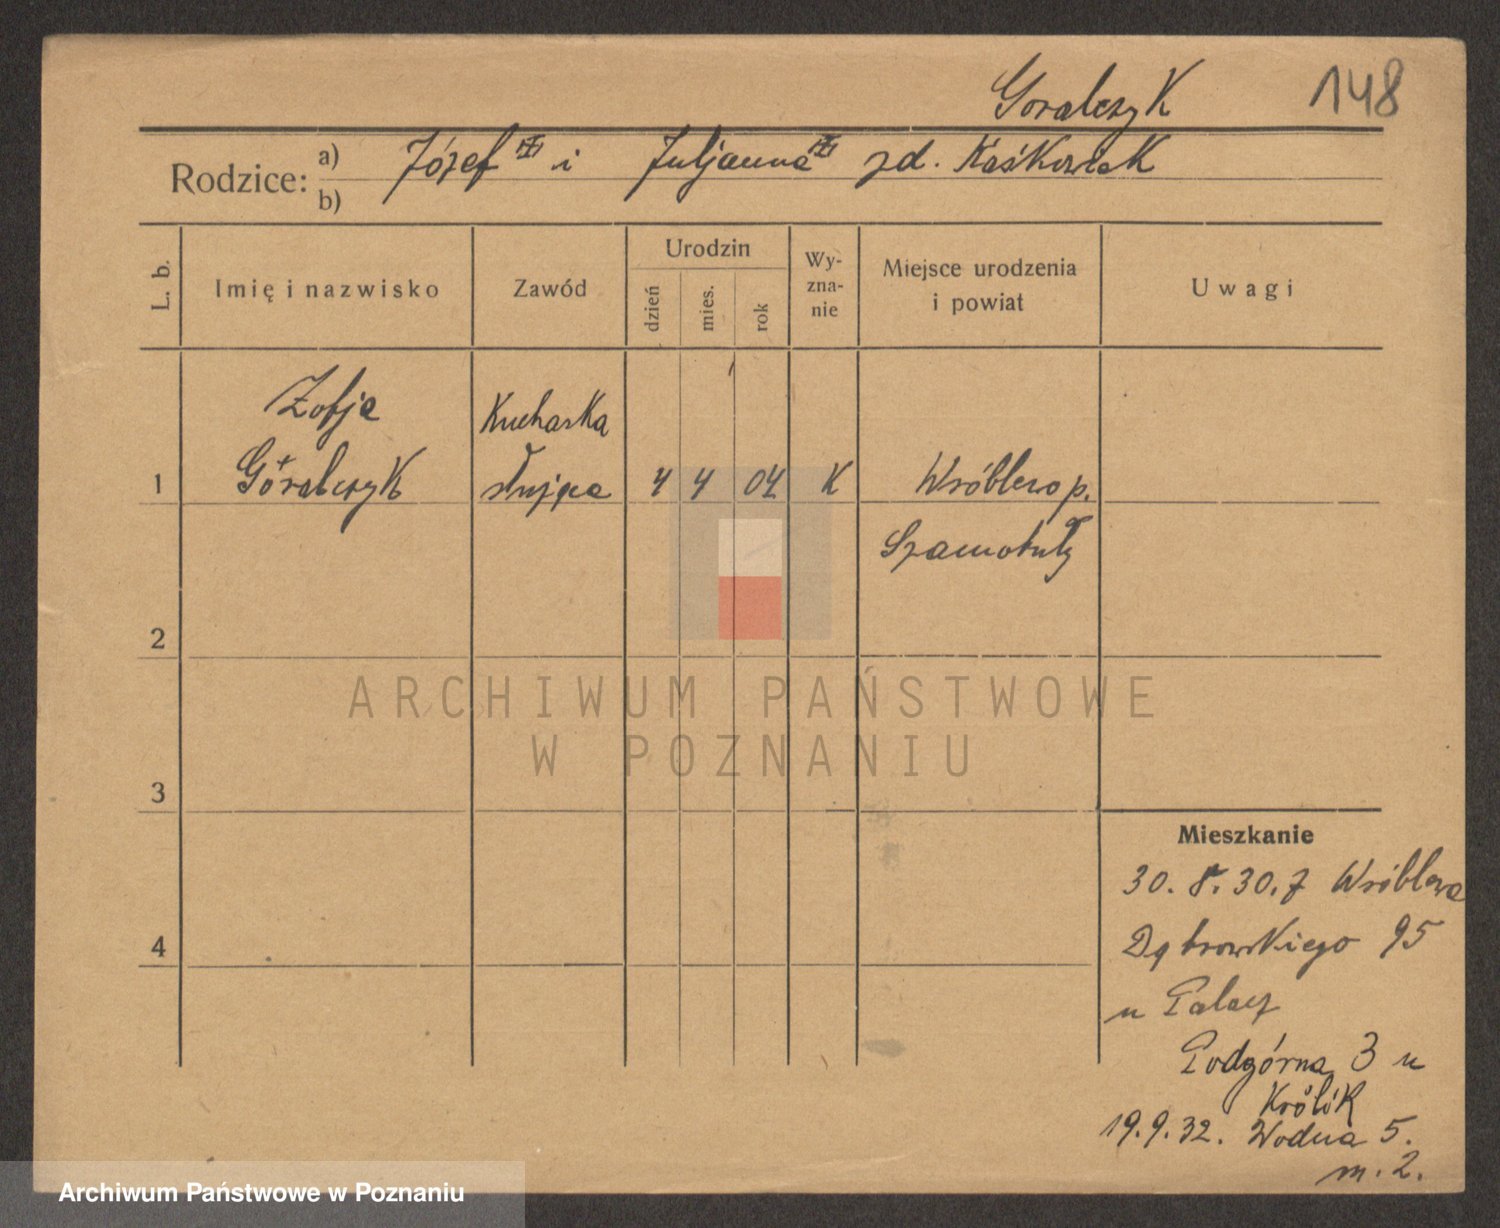 Goralczyk 148
Rodzice: a) Józef i Juljanna zd. Kaśkowiak
b)
L. b.
Imię i nazwisko
Zawód
Urodzin
dzień
mies.
rok
Wy-
zna-
nie
Miejsce urodzenia
i powiat
Uwagi
Zofja Kucharka
1 Góralczyk służąca 4 4 04 K Wróblewo p.
Szamotuły
2
ARCHIWUM PAŃSTWOWE
W POZNANIU
3
Mieszkanie
30. 8. 30. z Wróblewa
4
Dąbrowskiego 95
u Palacz
Podgórna 3 u
Królik
19. 9. 32. Wodna 5.
m. 2.
Archiwum Państwowe w Poznaniu